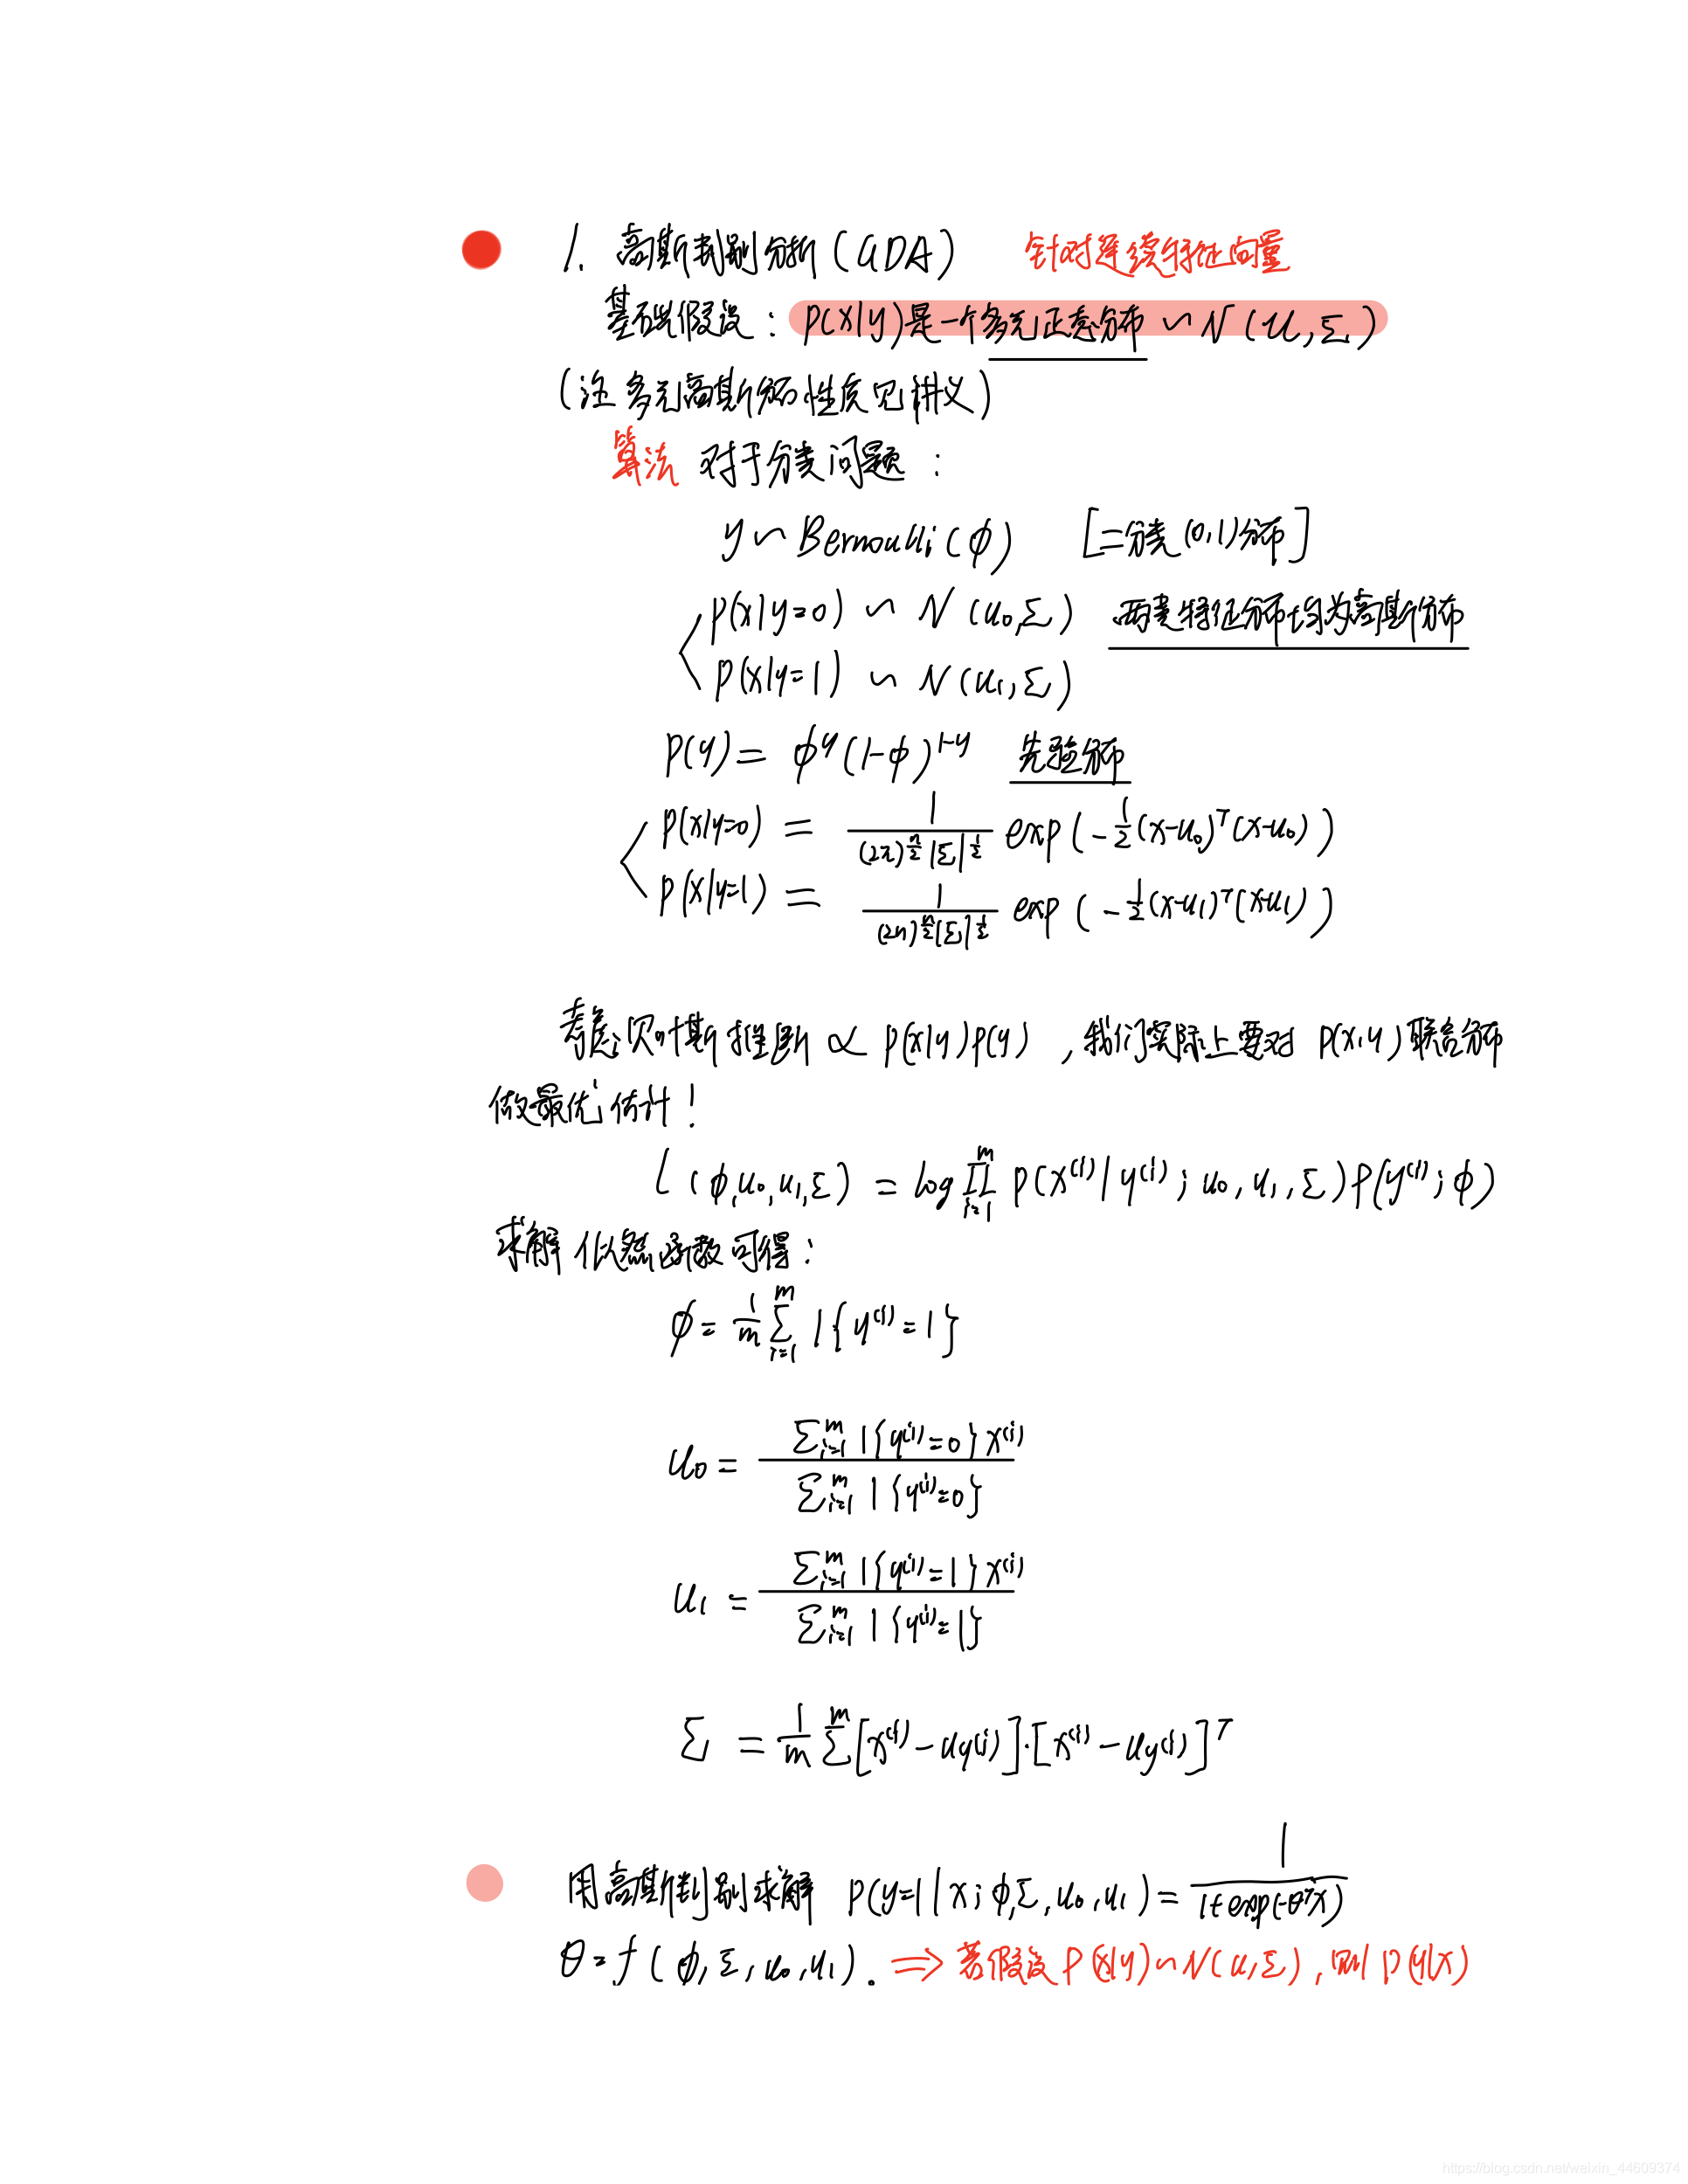 1. 高斯判别分析(GDA) 针对连续特征向量
基础假设: P(x|y)是一个多元正态分布 ~ N(u,Σ)
(注 多元高斯分布性质见讲义)
算法 对于分类问题:
y ~ Bernoulli(ϕ) [二分类(0,1)分布]
p(x|y=0) ~ N(u₀,Σ) 两类特征分布均为高斯分布
p(x|y=1) ~ N(u₁,Σ)
P(y) = ϕ^y (1-ϕ)^{1-y} 先验分布
P(x|y=0) = 1/((2π)^{n/2}|Σ|^{1/2}) exp(-1/2 (x-u₀)^T(x-u₀))
P(x|y=1) = 1/((2π)^{n/2}|Σ|^{1/2}) exp(-1/2 (x-u₁)^T(x-u₁))
考虑贝叶斯推断 ∝ P(x|y)P(y), 我们实际上要对 P(x,y)联合分布
做最优估计!
l(ϕ,u₀,u₁,Σ) = log ∏_{i=1}^{m} P(x^{(i)}|y^{(i)}; u₀,u₁,Σ)P(y^{(i)};ϕ)
求解似然函数可得:
ϕ = 1/m Σ_{i=1}^{m} 1{y^{(i)}=1}
u₀ = Σ_{i=1}^{m} 1{y^{(i)}=0}x^{(i)} / Σ_{i=1}^{m} 1{y^{(i)}=0}
u₁ = Σ_{i=1}^{m} 1{y^{(i)}=1}x^{(i)} / Σ_{i=1}^{m} 1{y^{(i)}=1}
Σ = 1/m Σ^{m} [x^{(i)} - u_{y^{(i)}}]·[x^{(i)} - u_{y^{(i)}}]^T
用高斯判别求解 P(y=1|x;ϕ,Σ,u₀,u₁) = 1/(1+exp(-θ^T x))
θ = f(ϕ,Σ,u₀,u₁). ⇒ 若假设P(x|y)~N(u,Σ), 则P(y|x)
https://blog.csdn.net/weixin_44609374